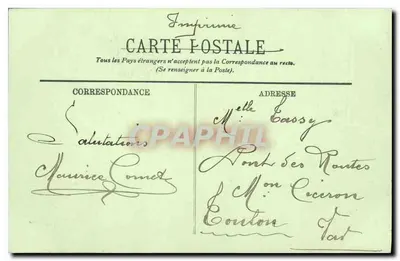 Imprimé
CARTE POSTALE
Tous les Pays étrangers n'acceptent pas la Correspondance au recto.
(Se renseigner à la Poste).
CORRESPONDANCE
Salutations
Maurice
ADRESSE
Melle M. Tassy
Pont des Routes
Mon Ciceron
Toulon
Var
CPRAPHIL